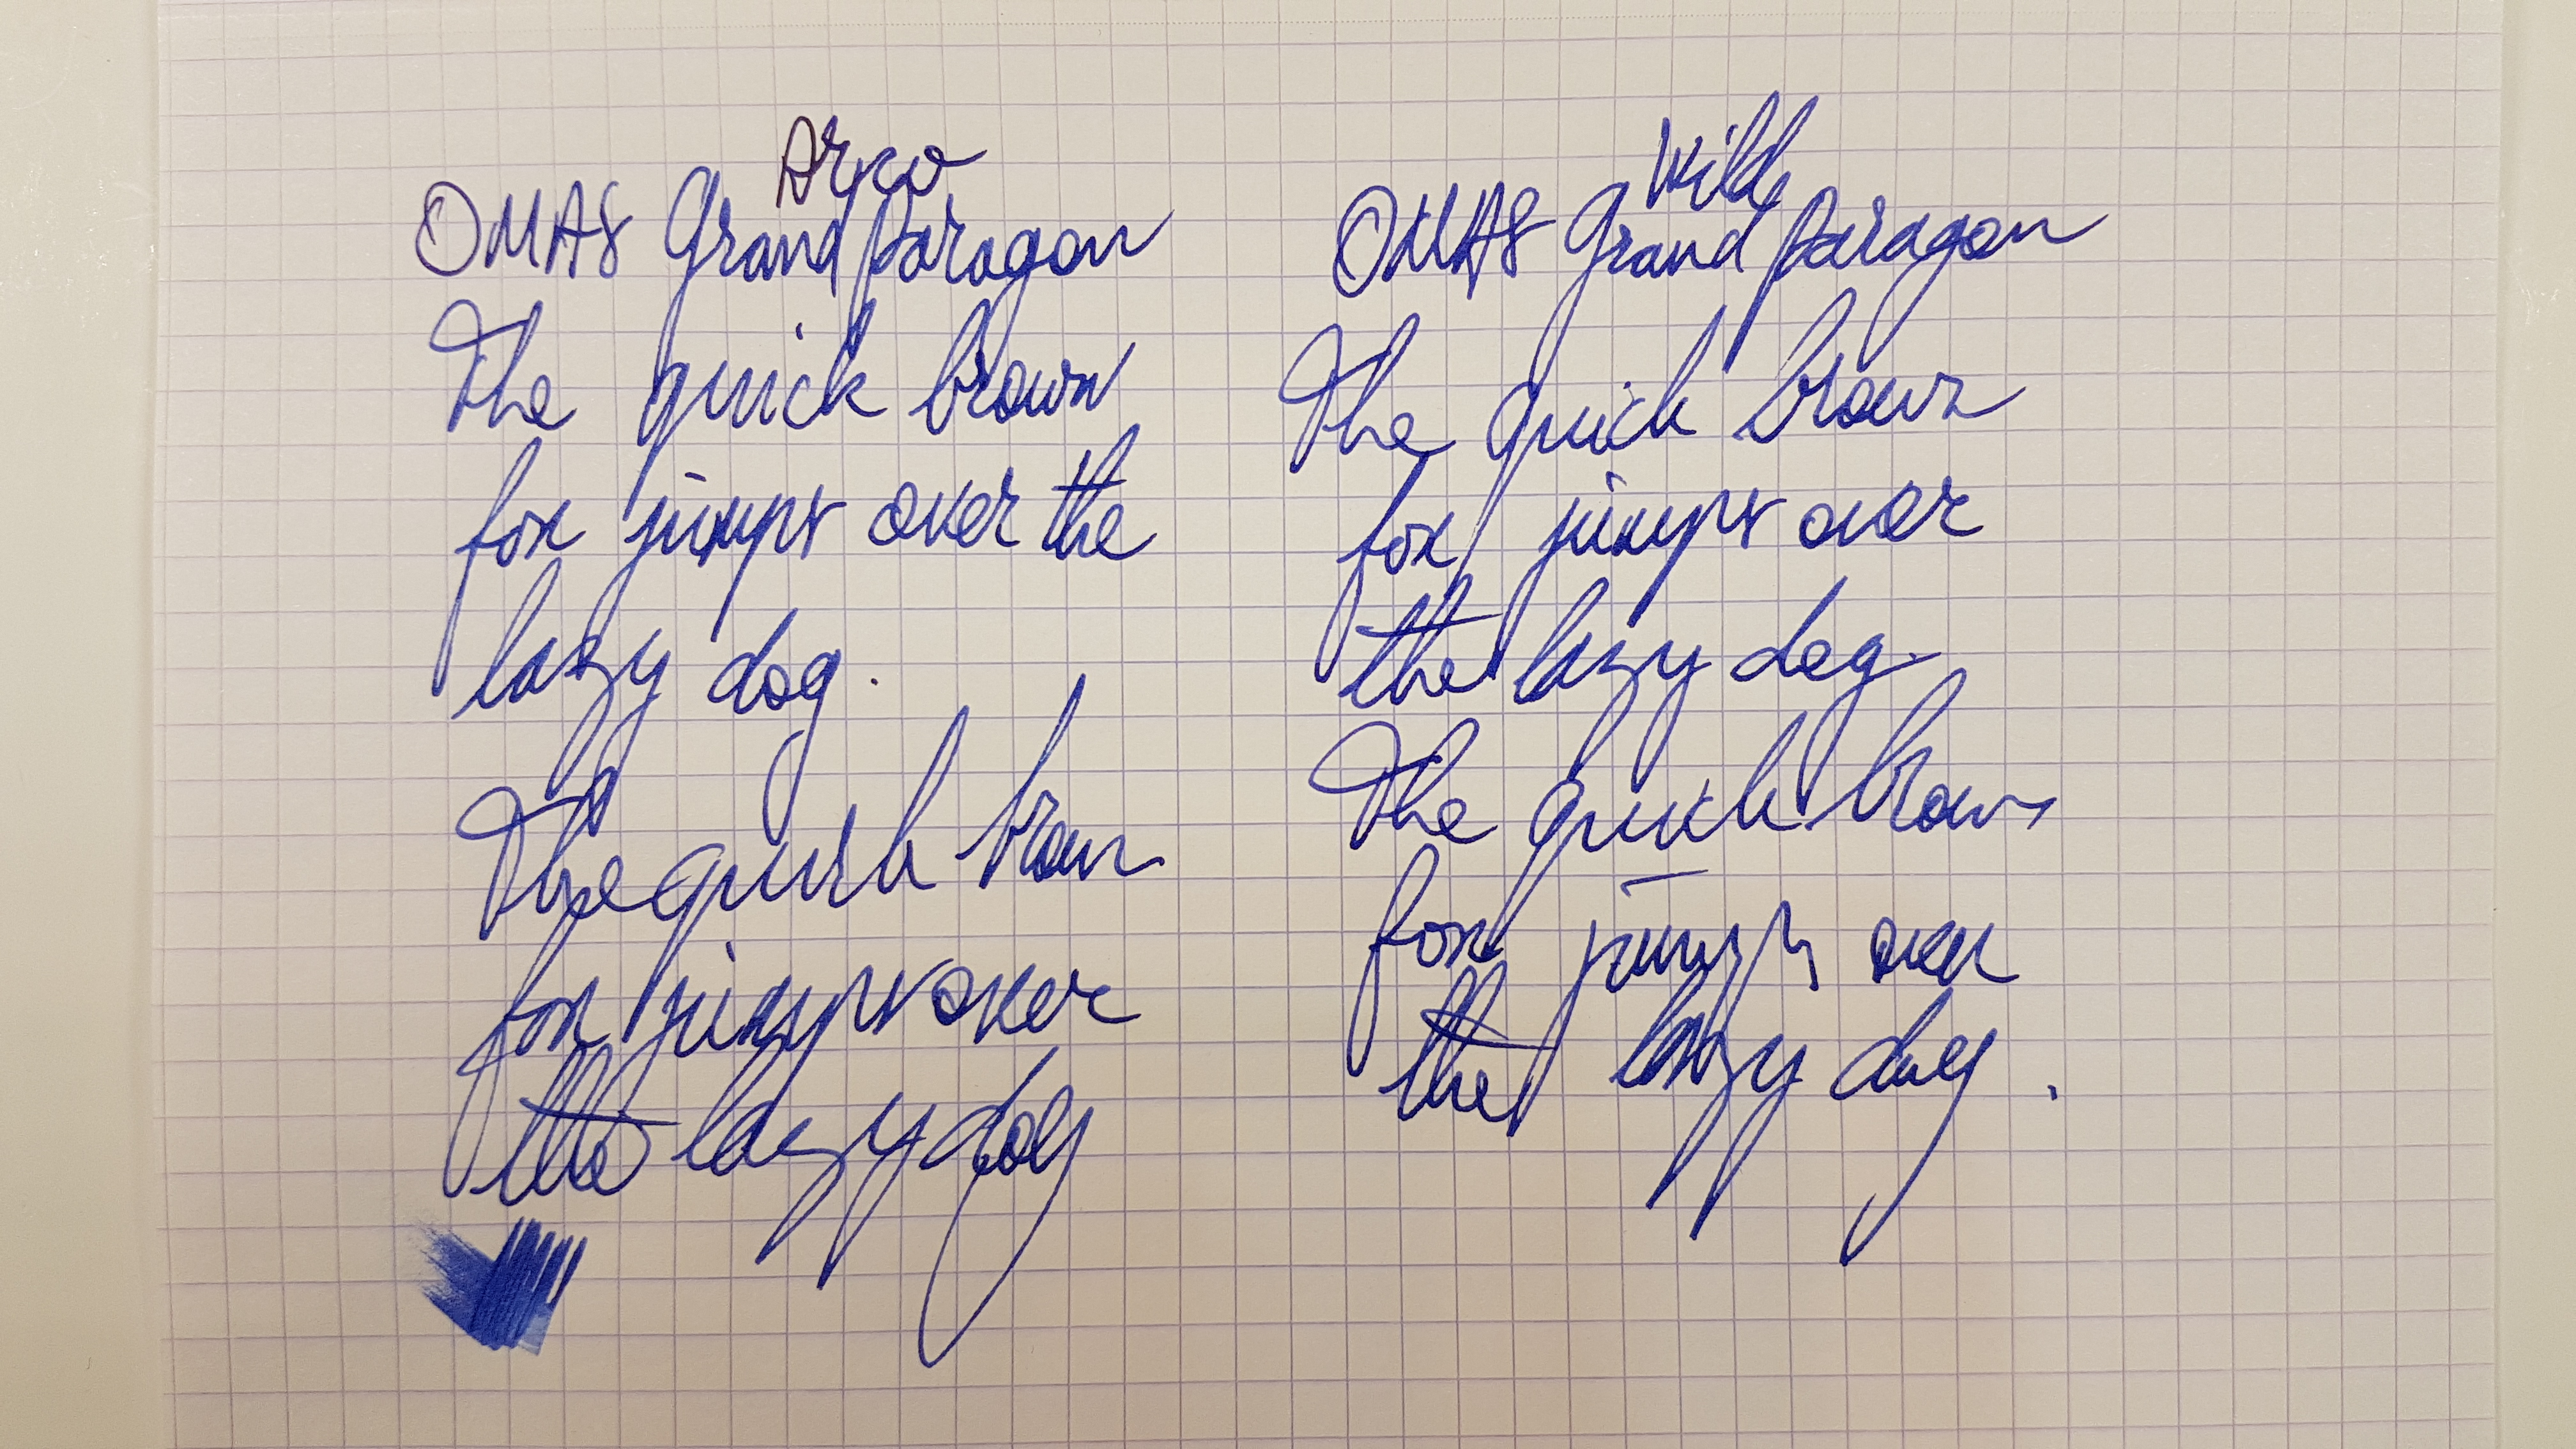 Arco
OMAS Grand Paragon
The quick brown
fox jumps over the
lazy dog.
The quick brown
fox jumps over
the lazy dog
Wild
OMAS Grand Paragon
The quick brown
fox jumps over
the lazy dog.
The quick brown
fox jumps over
the lazy dog.